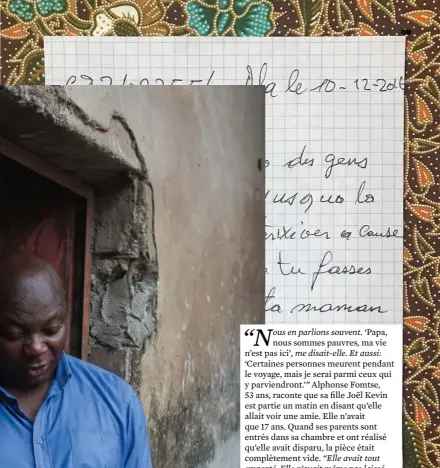 le 10-12-20
des gens
jusquo la
Cause
tu fasses
ta maman
“Nous en parlions souvent. ‘Papa,
nous sommes pauvres, ma vie
n’est pas ici’, me disait-elle. Et aussi:
‘Certaines personnes meurent pendant
le voyage, mais je serai parmi ceux qui
y parviendront.’” Alphonse Fomtse,
53 ans, raconte que sa fille Joël Kevin
est partie un matin en disant qu’elle
allait voir une amie. Elle n’avait
que 17 ans. Quand ses parents sont
entrés dans sa chambre et ont réalisé
qu’elle avait disparu, la pièce était
complètement vide. “Elle avait tout